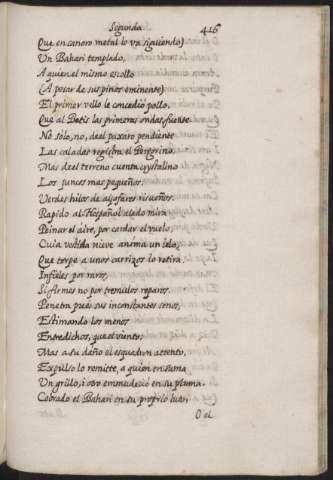 Segunda. 426
Que en canoro metal lo va siguiendo)
Un Bahari templado,
A quien el mismo escollo
(A pesar de sus pinos eminente)
El primer vello le concediò pollo,
Que al Betis las primeras ondas fuente.
No solo, no, del paxaro pendiente
Las caladas registra el Peregrino,
Mas del terreno cuenta crystalino
Los juncos mas pequeños,
Verdes hilos de aljofares risueños.
Rapido al Hespañol alado mira
Peinar el aire, por cardar el vuelo,
Cuia vestida nieve anima un ielo,
Que torpe a unos carrizos lo retira:
Infieles por raros,
Si firmes no por tremulos reparos.
Penetra pues sus inconstantes senos,
Estimando los menos
Entredichos, que el viento;
Mas a su daño el esquadron attento,
Expulso lo remitte, a quien en suma
Un grillo, i otro enmudeciò en su pluma.
Cobrado el Bahari en su proprio luto,
O el